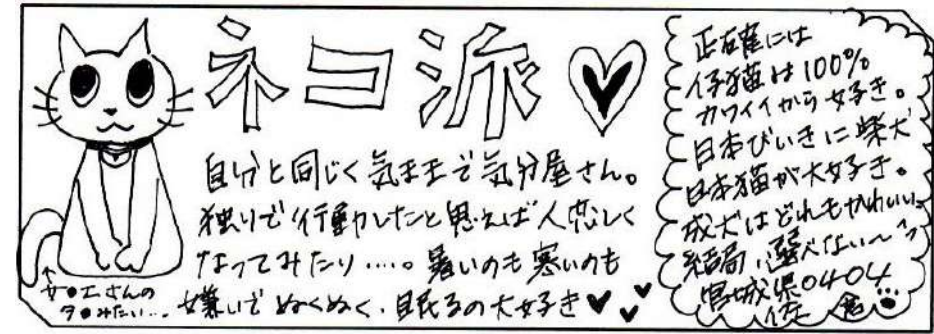 ネコ派
自分と同じく気ままで気分屋さん。
独りで行動したと思えば人恋しく
なってみたり……。暑いのも寒いのも
嫌いでぬくぬく、眠るの大好き
↑
サ●エさんの
タ●みたい…
正確には
仔猫は100%
カワイイから好き。
日本びいきに柴犬
日本猫が大好き。
成犬はどれもかわいい。
結局、選べない〜
宮城県0404